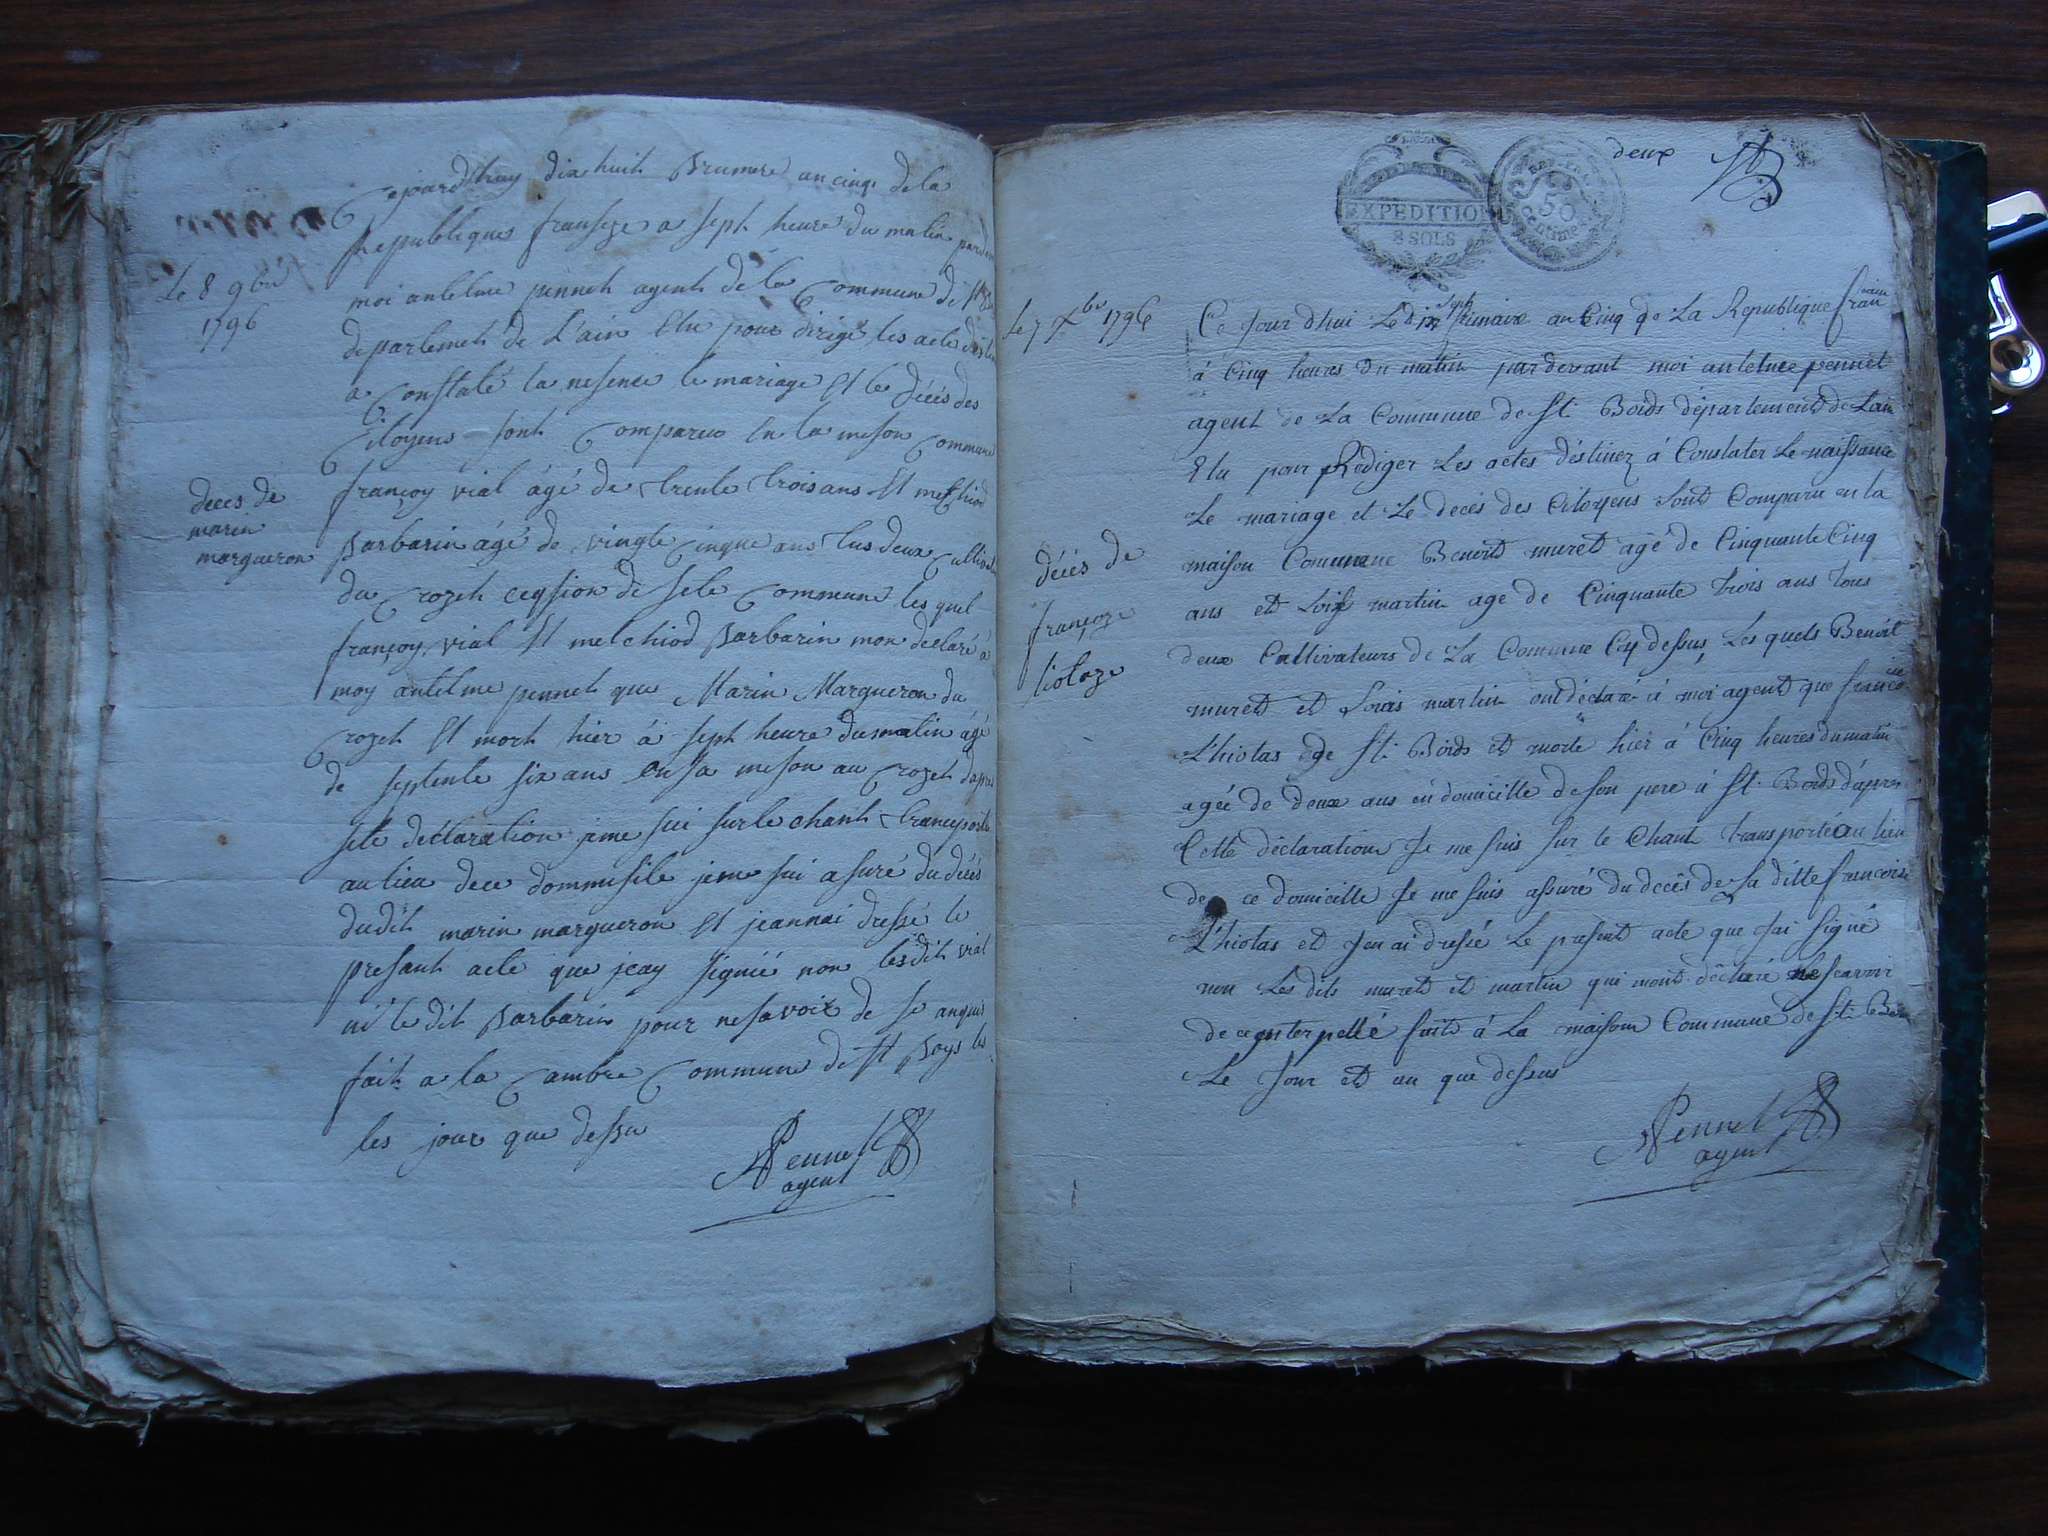 Cejourdhuy dixhuit Brumere an cinq de la
Republique franseze a sept heure du matin par
Le 8 9bre
1796
moi antelme pennet agent de la Commune de St
departement de L'ain Elu pour dirigé les acte
a Constaté la nesence le mariage Et le décés des
Citoyens sont Comparu En la meson Commune
deces de
marin
margueron
françoy vial ágé de trente trois ans Et melchiod
Barbarin ágé de vingte cinque ans tus deux
du Crozet de sete Commune les quel
françoy vial Et melchiod Barbarin mon declaré á
moy antelme pennet que Marin Margueron du
Crozet Et mort hier á sept heure dumatin ágé
de septente six ans en sa meson au Crozet dapre
sete declaration jeme sui surle chant transporte
au lieu dece dommisile jeme sui asuré du décés
dudit marin margueron Et jeannai dressé le
presant acte que jeay signié non lesdit vial
ni le dit Barbarin pour nesavoir de se anquis
fait a la Cambre Commune de St Boys les
les jour que dessu
Pennet
agent
EXPEDITION
8 SOLS
50
Centimes
deux
Le 7 Xbre 1796
Ce Jour dhui Le dix sept frimaire an Cinq de La Republique francaise
á Cinq heures du matin pardevant moi antelme pennet
agent de La Commune de St. Boids département de Lain
Elu pour Rédiger Les actes déstinez á Constater Le naissance
Le mariage et Le decés des Citoyens Sont Comparu en la
décés de
françoze
liolaze
maison Commune Benoit muret agé de Cinquante Cinq
ans et Loise martin age de Cinquante trois ans tous
deux Cultivateurs de La Comune Cy dessus, Les quels Benoit
muret et Louis martin ont déclaré á moi agent que francoise
L'hiolas de St. Boids et morte hier á Cinq heures du matin
agée de deux ans en domicille de son pere á St. Boids dápres
Cette déclaration Je me suis sur le Chant transporté au lieu
de ce domicille Je me suis assuré du decés de la ditte francoise
L'hiolas et Jen ai dressé Le present acte que Jai signé
non Les dits muret et martin qui mont déclaré ne scavoir
de ce interpellé fait á La maison Commune de St. Boids
Le Jour et an que dessus
Pennet
agent